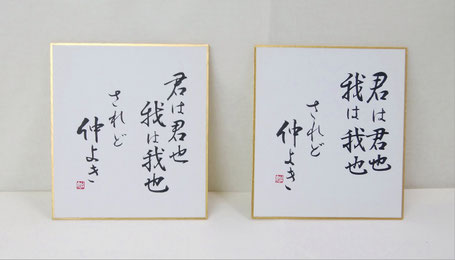 君は君也
我は我也
されど
仲よき
君は君也
我は我也
されど
仲よき